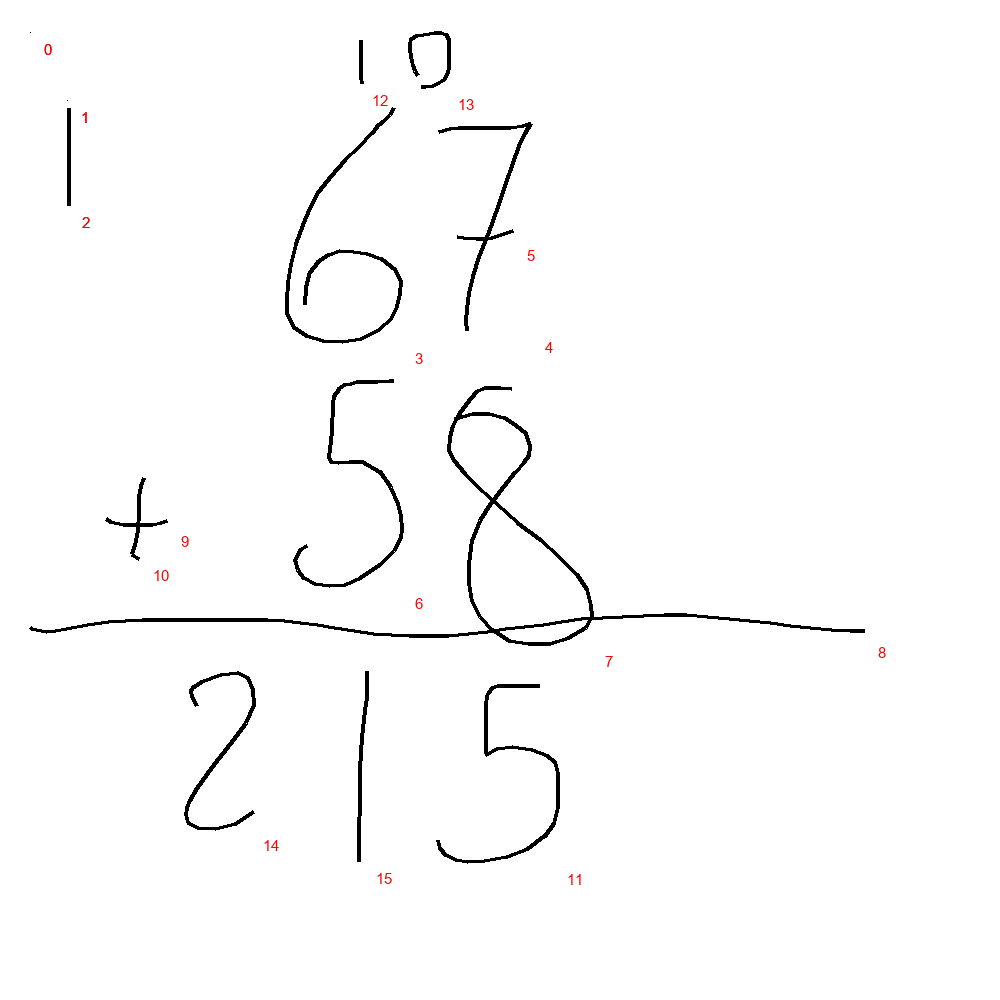 0
10
12 13
1 67
2
5
3 4
+ 58
9
10
6
7
8
215
14
15 11